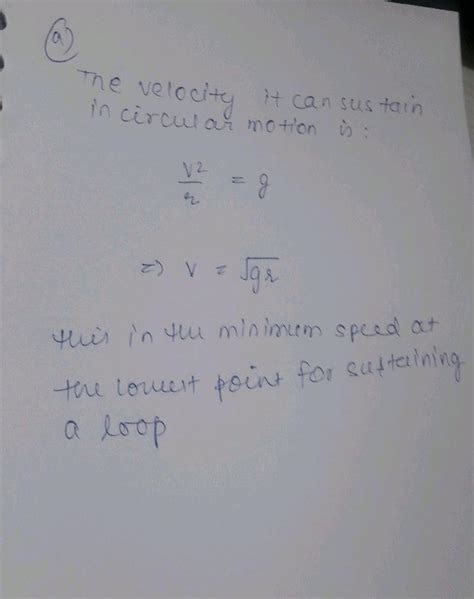 a)
The velocity it can sustain
in circular motion is:
v²/r = g
=> v = √gr
this in the minimum speed at
the lowest point for sustaining
a loop